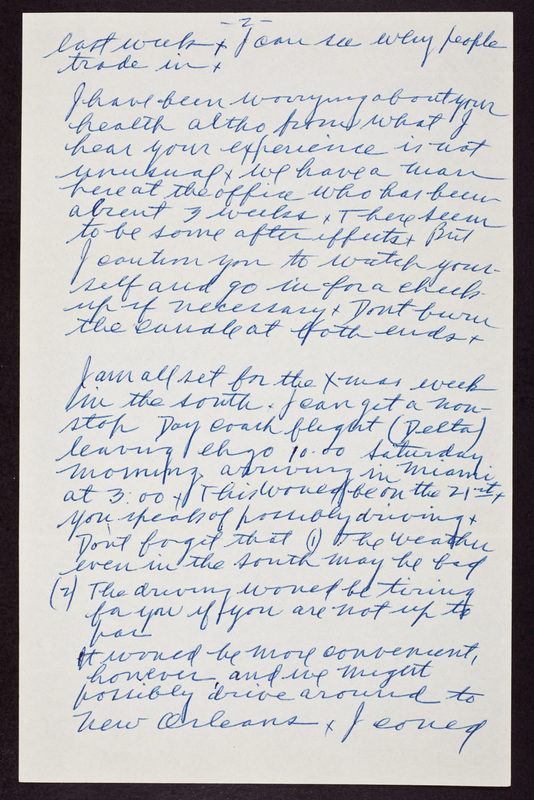 -2-
last week x I can see why people
trade in x
I have been worrying about your
health altho from what I
hear your experience is not
unusual x We have a man
here at the office who has been
absent 3 weeks x There seem
to be some after effects x But
I caution you to watch your-
self and go in for a check
up if necessary x Dont burn
the candle at both ends x
I am all set for the X-mas week
in the south. I can get a non-
stop Day coach flight (Delta)
leaving Chgo 10:00 Saturday
morning arriving in Miami
at 3:00 x This would be on the 21st x
You speak of possibly driving x
Dont forget that (1) The weather
even in the south may be bad
(2) The driving would be tiring
for you if you are not up to
par
It would be more convenient,
however, and we might
possibly drive around to
New Orleans x I could